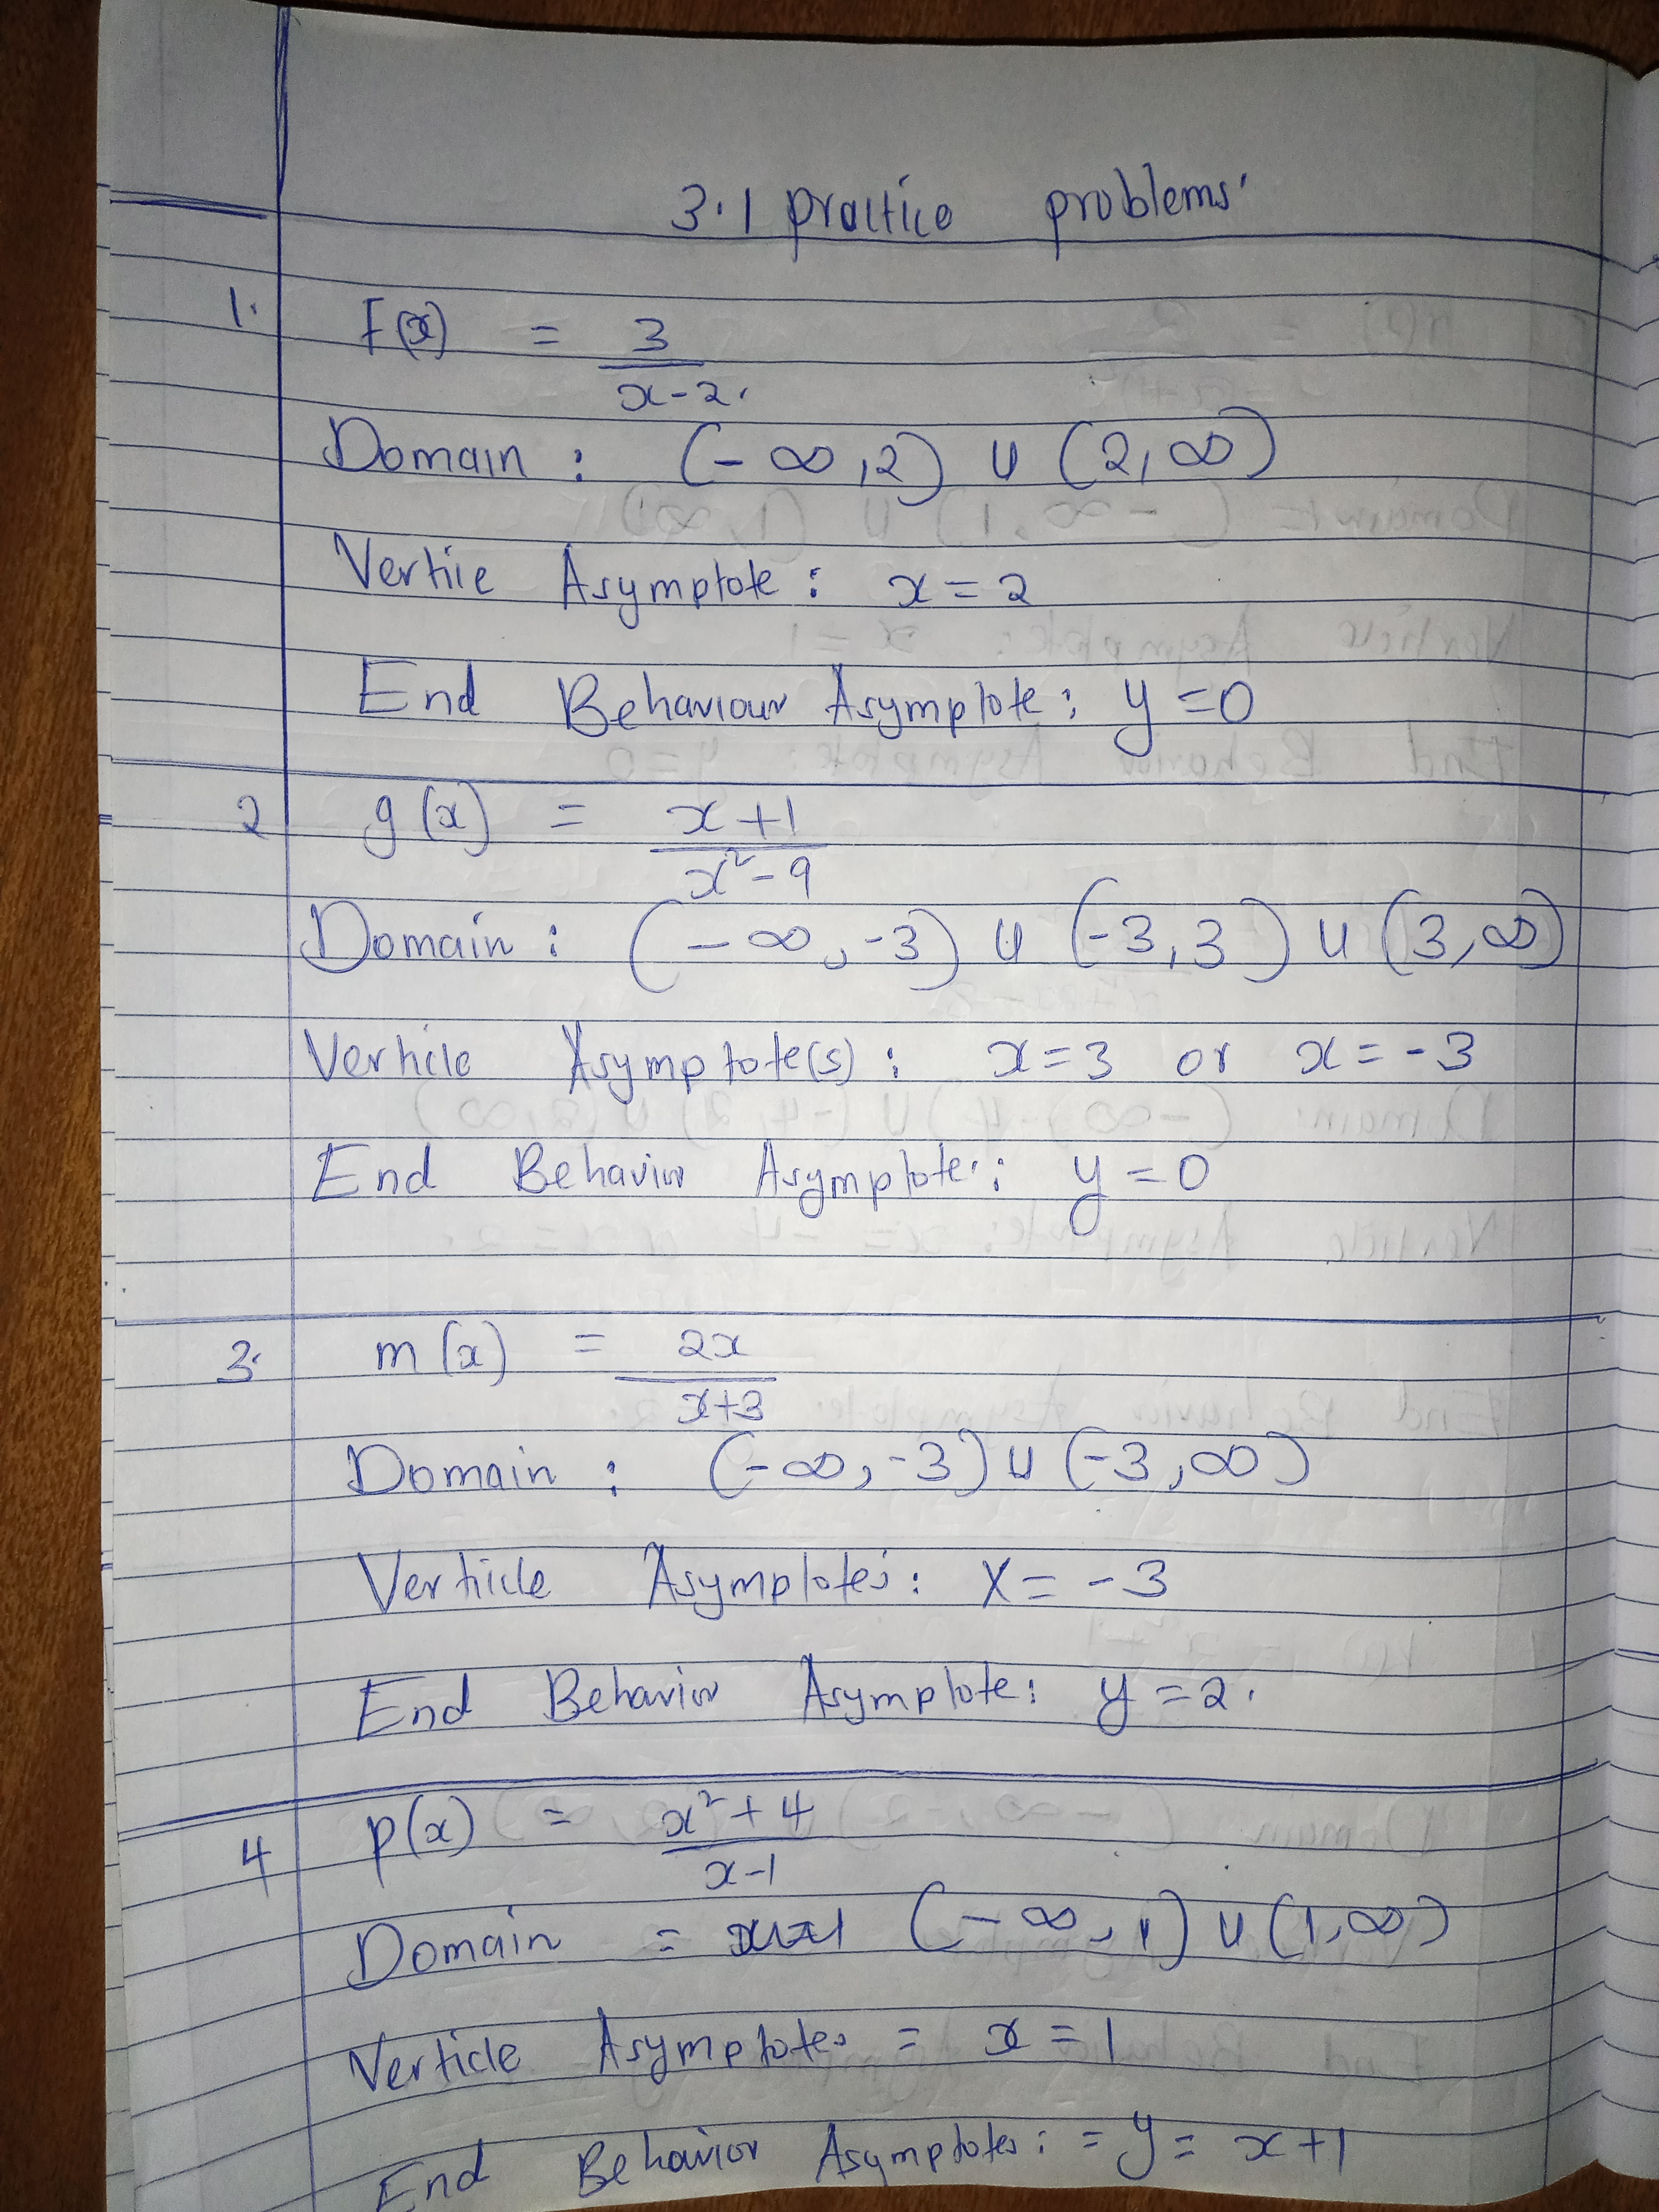 3.1 practice problems
1. F(x) = 3
x-2.
Domain : (-∞,2) ∪ (2,∞)
Vertice Asymptote : x=2
End Behaviour Asymptote : y=0
2 g(x) = x+1
x²-9
Domain : (-∞,-3) ∪ (-3,3) ∪ (3,∞)
Verticle Asymptote(s) : x=3 or x=-3
End Behavior Asymptote : y=0
3. m(x) = 2x
x+3
Domain : (-∞,-3) ∪ (-3,∞)
Verticle Asymptotes : X=-3
End Behavior Asymptote : y=2.
4 p(x) = x²+4
x-1
Domain = (-∞,1) ∪ (1,∞)
Verticle Asymptotes = x=1
End Behavior Asymptotes : = y = x+1